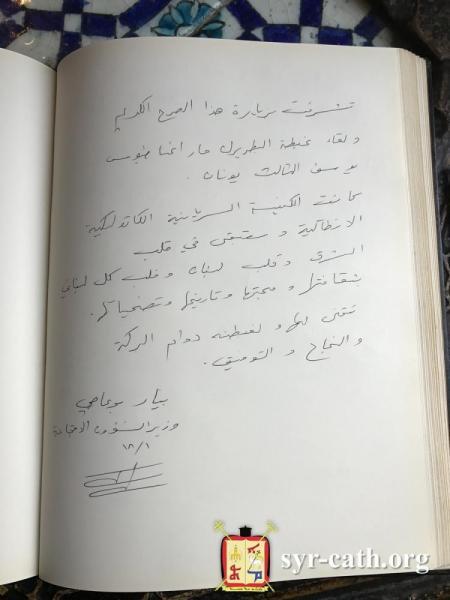 تشرفت بزيارة هذا الصرح الكريم
ولقاء غبطة البطريرك مار اغناطيوس
يوسف الثالث يونان.
كانت الكنيسة السريانية الكاثوليكية
الانطاكية وستبقى في قلب
الشرق وقلب لبنان وقلب كل لبناني
بثقافتها ومحبتها وتاريخها وتضحياتها.
نتمنى لها ولغبطته دوام البركة
والنجاح والتوفيق.
بيار بوعاصي
وزير الشؤون الاجتماعية
١٨/١
syr-cath.org